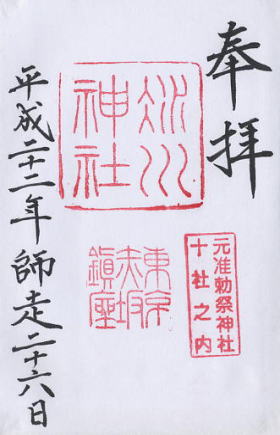 奉拝
氷川
神社
元准勅祭神社
十社之内
東京
赤坂
鎮座
平成二十二年師走二十六日